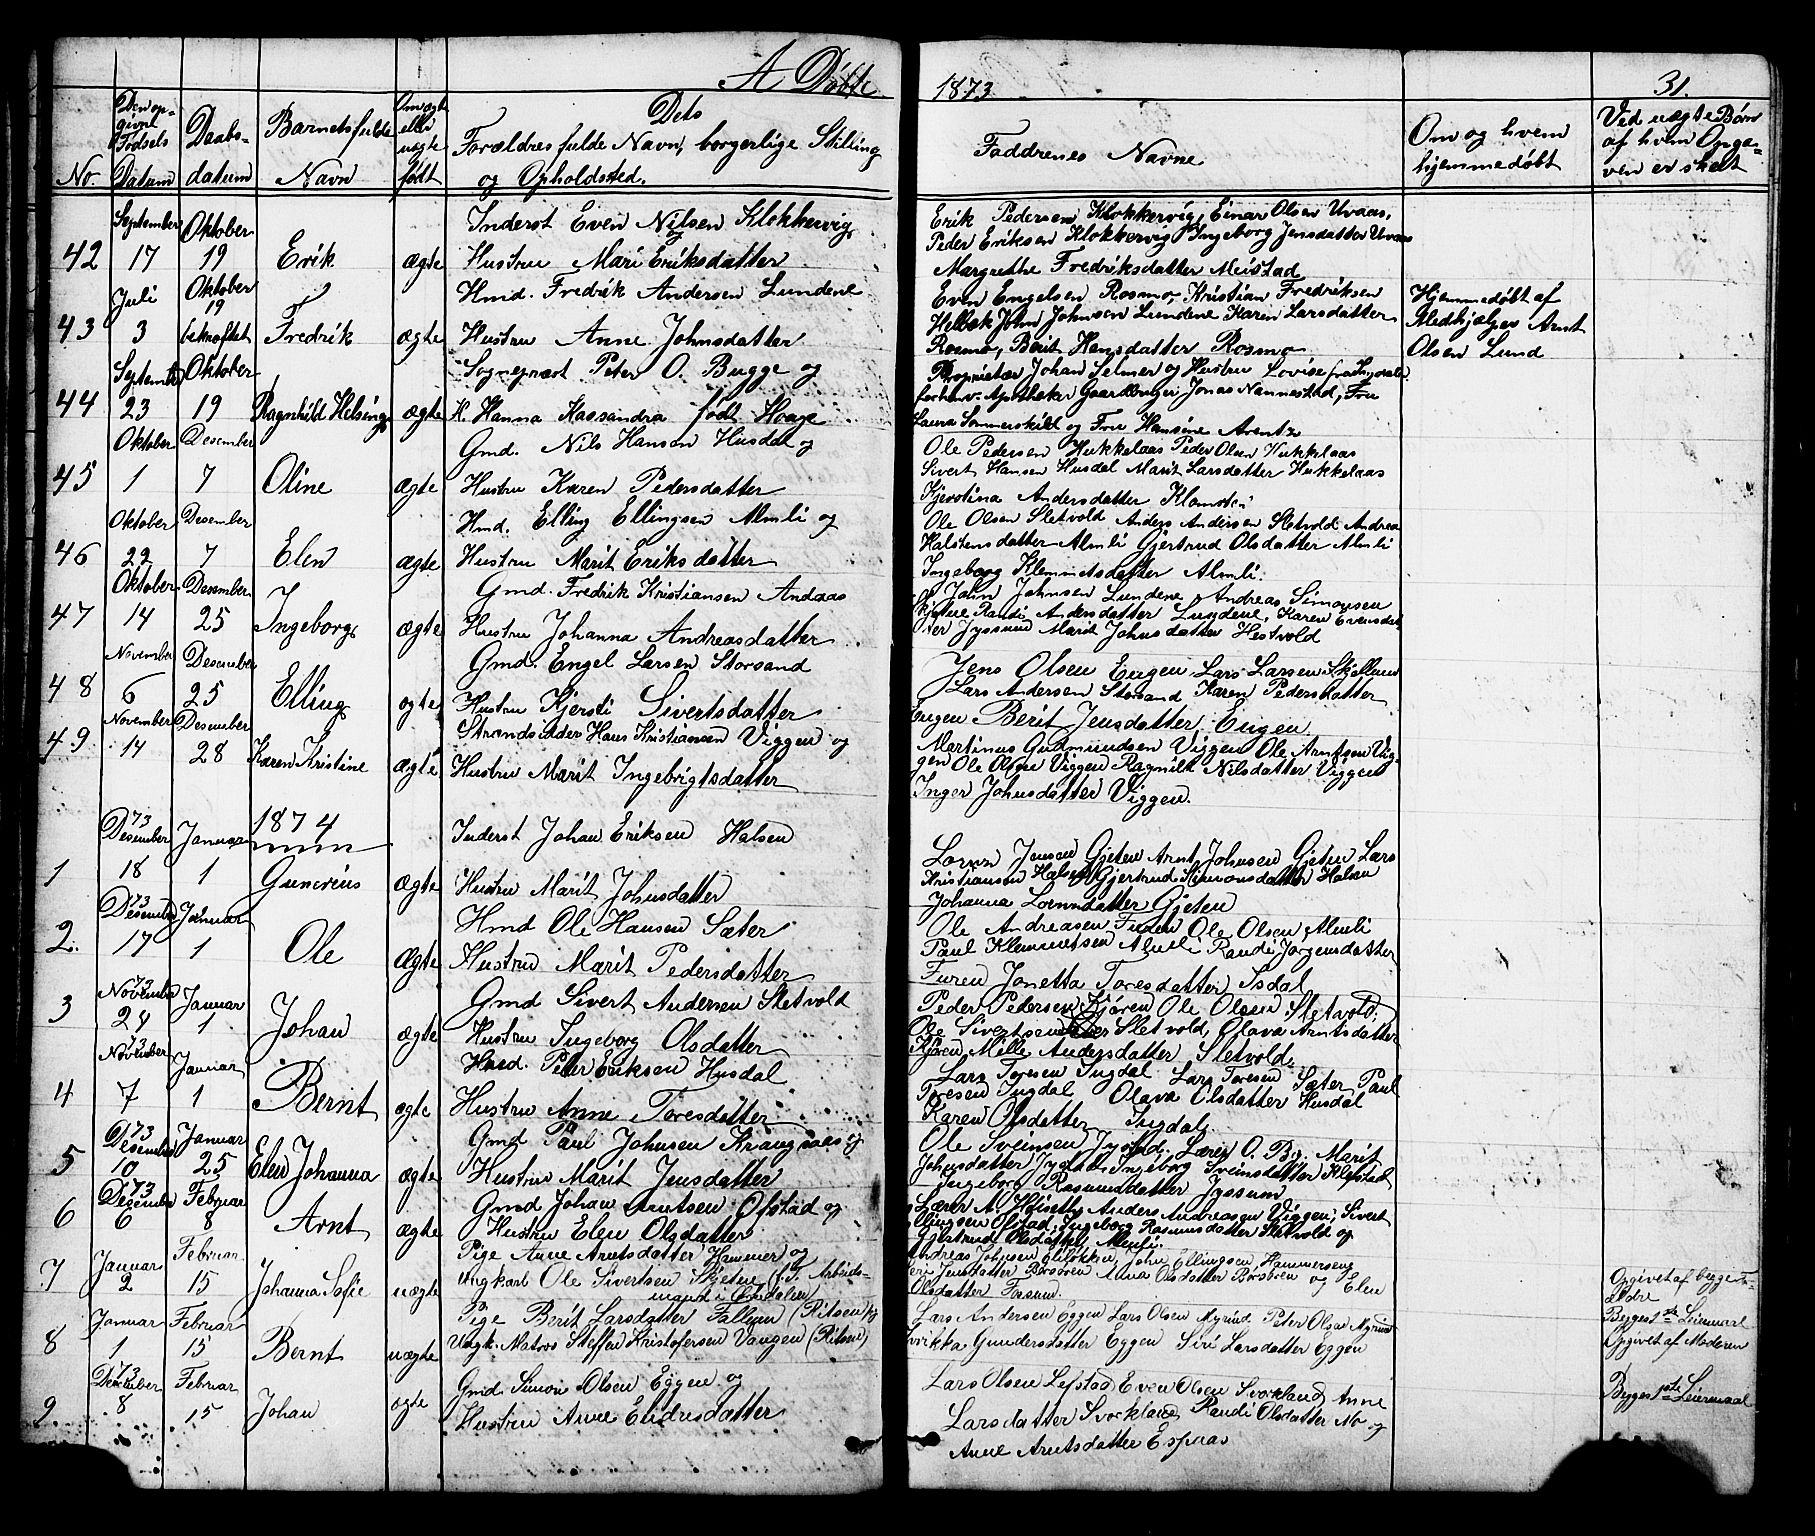 A Døbte
1873
31.
No.
Den op-
givne
Fødsels
Datum
Daabs-
datum
Barnets fulde
Navn
Om ægte
eller
uægte
født
Dets
Forældres fulde Navn, borgerlige Stilling
og Opholdssted.
Faddrenes Navne
Om og hvem
hjemmedøbt
Ved uægte Børn
af hvem Opga-
ven er skeet
September Oktober Inderst Even Nilsen Klokkervig
42 17 19 Erik ægte Hustru Mari Eriksdatter
Erik Pedersen Klokkervig, Einar Olsen Uvaas,
Peder Eriksen Klokkervig Ingeborg Jensdatter Uvaas
Margrethe Fredriksdatter Meistad
Juli Oktober Hmd. Fredrik Andersen Lundene
43 3 19 bekræftet Fredrik ægte Hustru Anne Johnsdatter
Even Engelsen Rosmo, Kristian Fredriksen
Helbæk John Johnsen Lundene Karen Larsdatter
Rosmo, Berit Hansdatter Rosmo
Hjemmedøbt af
Medhjælper Arnt
Olsen Lund
September Oktober Sogneprest Peter O. Bugge og
44 23 19 Ragnhild Helsing ægte H. Hanna Kassandra født Hoage
Proprietær Johan Selmer og Hustru Lovise fra Ingdalen
forhenv. Apotheker Gaardbruger Jonas Nannestad, Fru
Laura Sommerskild og Fru Hansine Arentz
Oktober Desember Gmd. Nils Hansen Husdal og
45 1 7 Oline ægte Hustru Karen Pedersdatter
Ole Pedersen Hukkelaas Peder Olsen Hukkelaas
Sivert Hansen Husdal Marit Larsdatter Hukkelaas
Kjerstina Andersdatter
Oktober Desember Hmd. Elling Ellingsen Almli og
46 22 7 Elen ægte Hustru Marit Eriksdatter
Ole Olsen Sletvold Anders Andersen Sletvold Andrea
Halstensdatter Almli Gjertrud Olsdatter Almli
Ingeborg Klemmetsdatter Almli.
Oktober Desember Gmd. Fredrik Kristiansen Andaas
47 14 25 Ingeborg ægte Hustru Johanna Andreasdatter
John Johnsen Lundene Andreas Simonsen
Randi Andersdatter Lundene, Karen Evensdat-
ter Jyssum Marit Johnsdatter Hestvold
November Desember Gmd. Engel Larsen Storsand
48 6 25 Elling ægte Hustru Kjersti Sivertsdatter
Jens Olsen Eugen Lars Larsen Skjellum
Lars Andersen Storsand Karen Pedersdatter
Eugen Berit Jensdatter Eugen
November Desember Strandsidder Hans Kristiansen Viggen og
49 14 28 Karen Kristine ægte Hustru Marit Ingebrigtsdatter
Martinus Gudmundsen Viggen Ole Arntsen Vig-
gen Ole Olsen Viggen Ragnild Nilsdatter Viggen
Inger Johnsdatter Viggen.
1874
73
Desember Januar Inderst Johan Eriksen Halsen
1 18 1 Guncrius ægte Hustru Marit Johnsdatter
Jensen Gjeten Arnt Johnsen Gjeten Lars
Kristiansen Halsen Gjertrud Simonsdatter Halsen
Johanna Gjeten
73
Desember Januar Hmd Ole Hansen Sæter
2. 17 1 Ole Ægte Hustru Marit Pedersdatter
Ole Andreasen Furen Ole Olsen Almli
Paul Klemmetsen Almli Randi Jørgensdatter
Furen Jonetta Toresdatter Isdal
73
November Januar Gmd Sivert Andersen Sletvold
3 24 1 Johan ægte Hustru Ingeborg Olsdatter
Peder Pedersen Kjøren Ole Olsen Sletvold,
Ole Sivertsen Sletvold, Olava Arntsdatter
Kjøren, Mille Andersdatter Sletvold.
73
November Januar Hmd. Peter Eriksen Husdal
4 7 1 Bernt ægte Hustru Anne Toresdatter
Lars Toresen Ingdal Lars Toresen Sæter Paul
Toresen Ingdal Olava Olsdatter Husdal
Karen Olsdatter Ingdal
73
Desember Januar Gmd Paul Johnsen Krangsaas og
5 10 25 Elen Johanna ægte Hustru Marit Jensdatter
Ole Sveinsen Jyssum, Lærer O. By. Marit
Johnsdatter Ingeborg Sveinsdatter Klefstad
Ingeborg Rasmusdatter Jyssum
73
Desember Februar Gmd Johan Arntsen Ofstad og
6 6 8 Arnt ægte Hustru Elen Olsdatter
Lærer A. Høiseth, Anders Andreasen Viggen, Sivert
Ellingsen Ofstad, Ingeborg Rasmusdatter Sletvold og
Gjertrud Olsdatter Almli.
Januar Februar Pige Anne Arntsdatter Hammer og
7 2 15 Johanna Sofie uægte Ungkarl Ole Sivertsen Skjetne (f. T. Arbeids-
mand i Ørkedalen)
Andreas Johnsen Eliløkken, John Ellingsen, Hammerseng
Jensdatter Børsøren Anna Olsdatter Børsøren og Elen
Olsdatter Fossum
Opgivet af begge For-
ældre
Begges 1ste Leiermaal
Januar Februar Pige Berit Larsdatter Fallem (Ritsen) og
8 1 15 Bernt uægte Ungk. Matros Steffen Kristofersen Vangen (Ritsen)
Lars Andersen Eggen Lars Olsen Myrud Peter Olsen Myrud
Gundersdatter Eggen Siri Larsdatter Eggen
Opgivet af Moderen
Begges 1ste Leiermaal
73
Desember Februar Gmd. Simon Olsen Eggen og
9. 8 15 Johan ægte Hustru Anne Endresdatter
Lars Olsen Lefstad, Even Olsen Svorkland, Anne
Larsdatter Svorkland Randi Olsdatter Mo og
Anne Arntsdatter Espaas